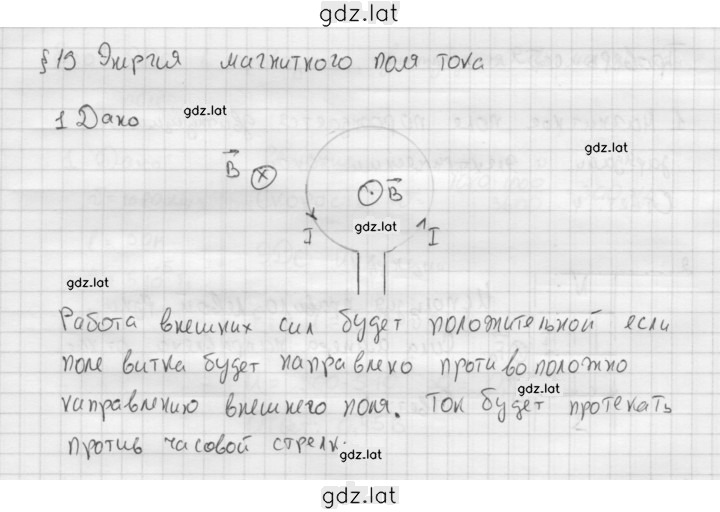 gdz.lat
§19 Энергия магнитного поля тока
1 Дано
gdz.lat
gdz.lat
B
B
gdz.lat
I
I
gdz.lat
Работа внешних сил будет положительной если
поле витка будет направлено противоположно
gdz.lat
направлению внешнего поля. Ток будет протекать
против часовой стрелк.
gdz.lat
gdz.lat